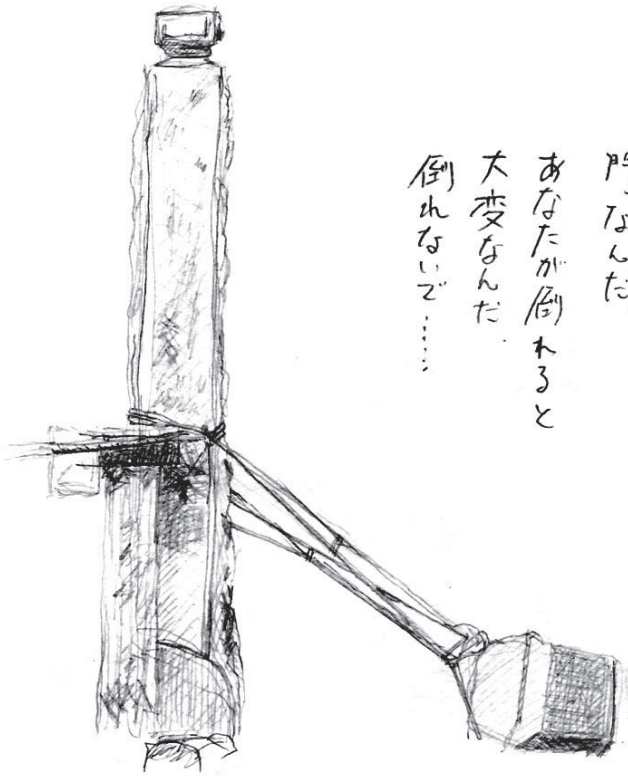 門なんだ
あなたが倒れると
大変なんだ.
倒れないで……